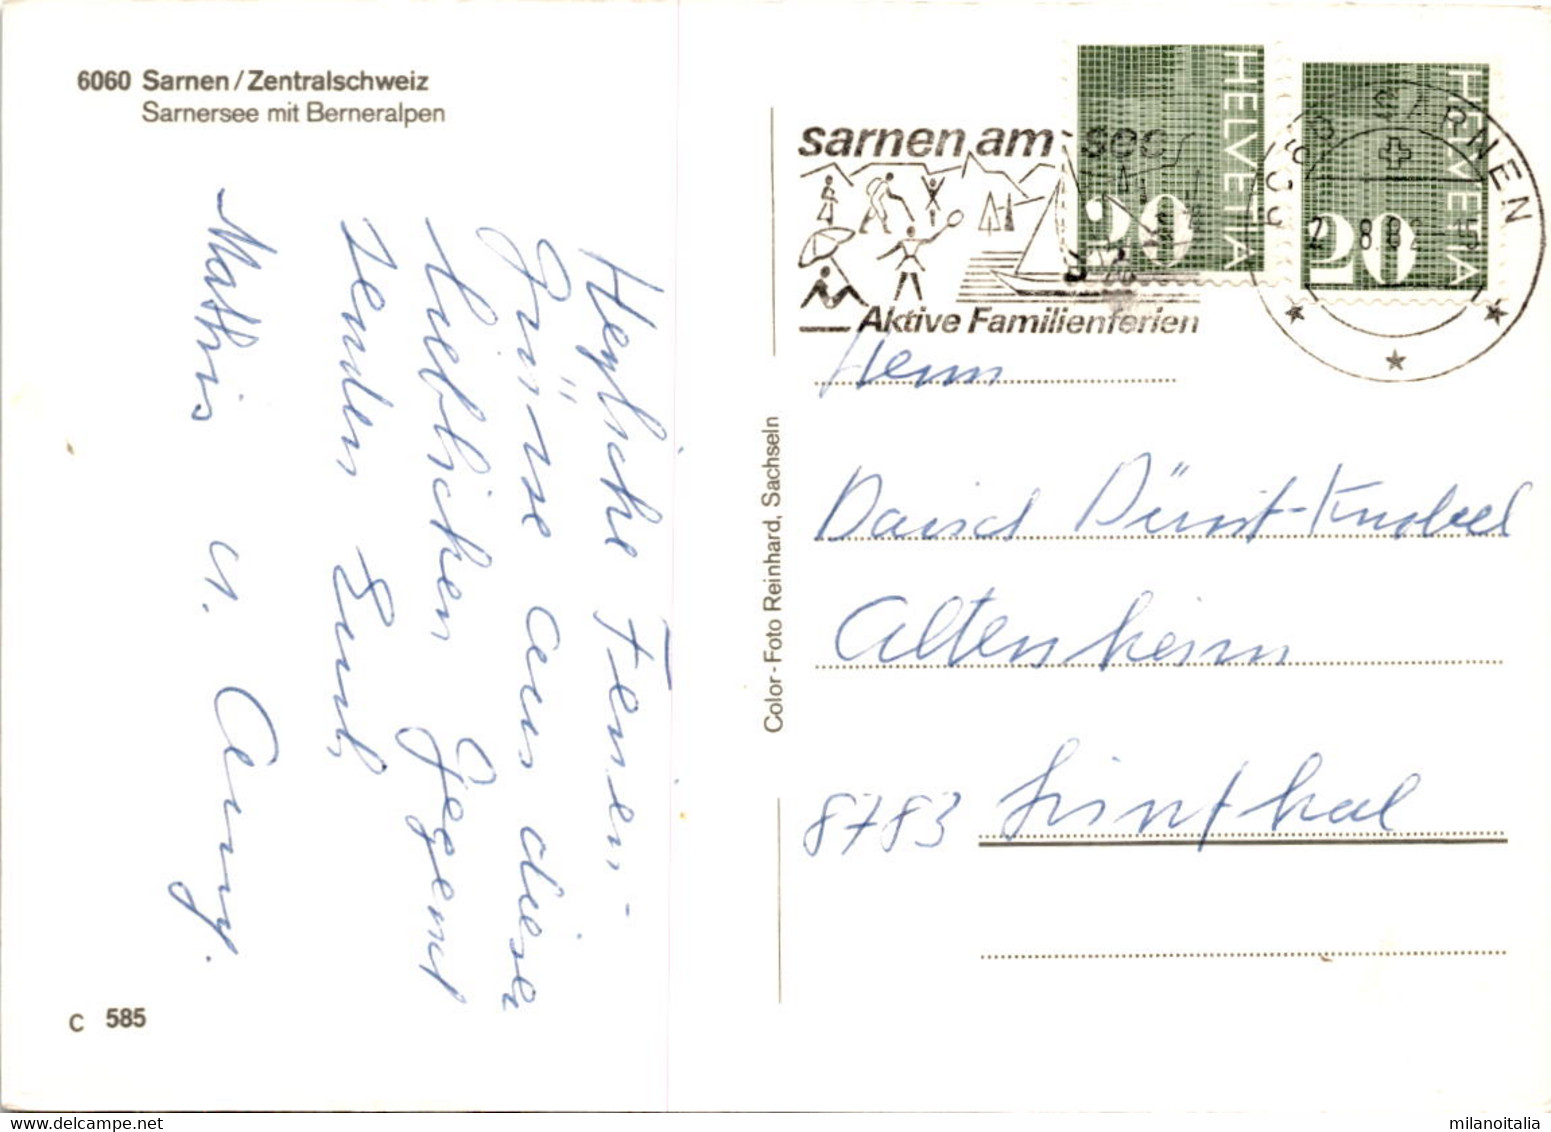 6060 Sarnen / Zentralschweiz
Sarnersee mit Berneralpen
Herzliche Ferien-
grüsse aus dieser
lieblichen Gegend
senden Euch
Mathis u. Anny.
C 585
Color - Foto Reinhard, Sachseln
sarnen am see
Aktive Familienferien
HELVETIA
20
HELVETIA
20
6060 SARNEN
2. 8.82 - 15
Herrn
David Dürst-Knobel
Altersheim
8783 Linthal
https://www.delcampe.net
milanoitalia